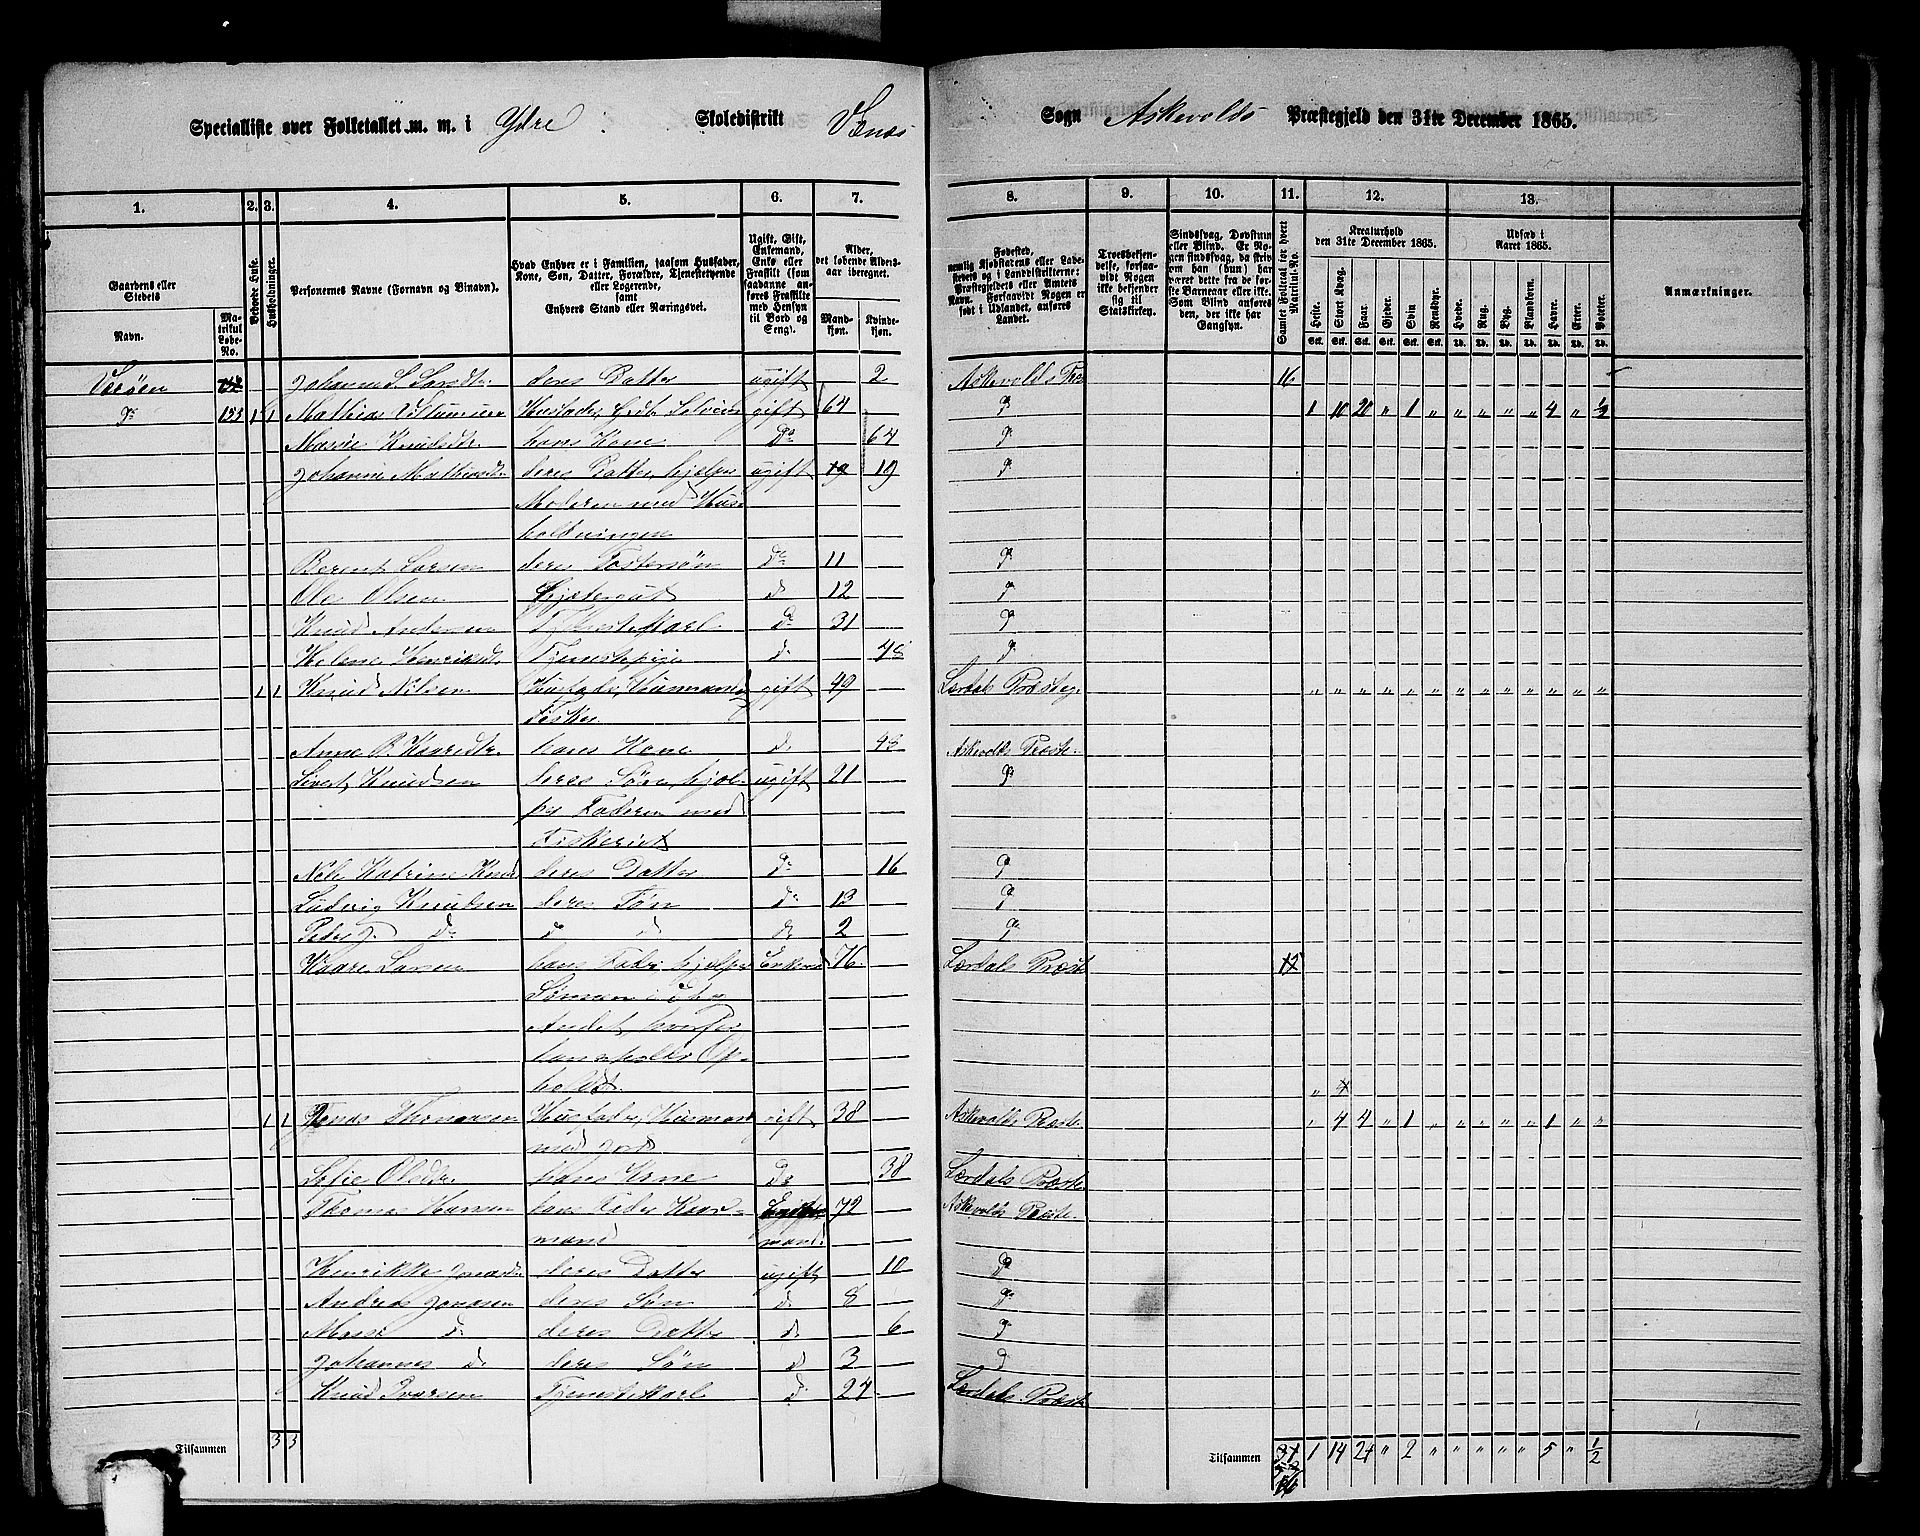 Specialliste over Folketallet m. m. i Ydre Skoledistrikt Vnæs Sogn Askevolds Præstegjeld den 31te December 1865.
1. 2. 3. 4. 5. 6. 7. 8. 9. 10. 11. 12. 13.
Gaardens eller Stedets
Navn.
Matrikul Løbe-No.
Beboede Huse.
Husholdninger.
Personernes Navne (Fornavn og Binavn).
Hvad Enhver er i Familien, saasom Husfader, Kone, Søn, Datter, Forældre, Tjenestetyende eller Logerende, samt Enhvers Stand eller Næringsvei.
Ugift, Gift, Enkemand, Enke eller Fraskilt (som saadanne anføres Fraskilte med Hensyn til Bord og Seng).
Alder, det løbende Aldersaar iberegnet.
Mandkjøn. Kvindekjøn.
Fødested, nemlig Kjøbstadens eller Ladestedets eller i Landdistrikterne: Præstegjeldets eller Amtets Navn. Forsaavidt Nogen er født i Udlandet, anføres Landet.
Troesbekjendelse, forsaavidt Nogen ikke bekjender sig til Statskirken.
Sindssvag, Døvstum eller Blind. Er Nogen sindssvag, da skrives om han (hun) har været dette fra de første Barneaar eller ikke. Som Blind anføres den, der ikke har Gangsyn.
Samlet Folketal for hvert Matrikul-No.
Kreaturhold den 31te December 1865.
Heste. Stort Kvæg. Faar. Gjeder. Svin. Rensdyr.
Udsæd i Aaret 1865.
Hvede. Rug. Byg. Blandkorn. Havre. Erter. Poteter.
Anmærkninger.
Værøen Johanne L. Larsdtr. deres Datter ugift 2 Askevolds Præ 16
do 153 1 1 Mathias Tillumsen Husfader, Grdb. Selveier gift 64 do 1 10 20 " 1 " " " " " 4 " 1/2
Marie Knudsdtr. hans Kone do 64 do
Johanne Mathiasdtr. deres Datter, hjælper ugift 19 19 do
Moderen med Hus
holdningen
Berent Larsen deres Fostersøn do 11 do
Ole Olsen Gjetergut d 12 do
Knud Andersen Tjenestekarl do 31 do
Helene Henriksdtr. Tjenestepige d 48 do
1 1 Knud Nilsen Husfader, Husmand, gift 49 Lærdals Præsteg. " " " " " " " " " " " " "
Fisker
Anne B. Kaaresdtr. hans Kone d 43 Askevolds Præste.
Sivert Knudsen deres Søn, hjæl- ugift 21 do
per Faderen med
Fiskeriet
Nele Katrine Knud deres Datter do 16 do
Ludvig Knudsen deres Søn do 13 do
Peder J. do d d d 2 do
Kaare Larsen hans Fader hjælper Enkem 76 Lærdals Præst 12
Sønnen i Et og
Andet, hvorfor
han nyder Op-
hold.
" 4
1 1 Jonas Thomassen Husfader, Husmand gift 38 Askevolds Præste " 4 4 " 1 " " " " " 1 " "
med Jord
Sofie Olsdtr. hans Kone do 38 Lærdals Præste.
Thomas Hansen hans Fader Kaar- Enke 72 Askevolds Præste.
mand mand.
Henrikke Jonasdtr deres Datter ugift 10 do
Andreas Jonasen deres Søn d 8 do
d deres Datter d 6 do
Johannes d deres Søn d 3 d
Knud Iversen Tjenestekarl d 24 Lærdals Præst
Tilsammen 3 3
Tilsammen 1 14 24 " 2 " " " " " 5 " 1/2